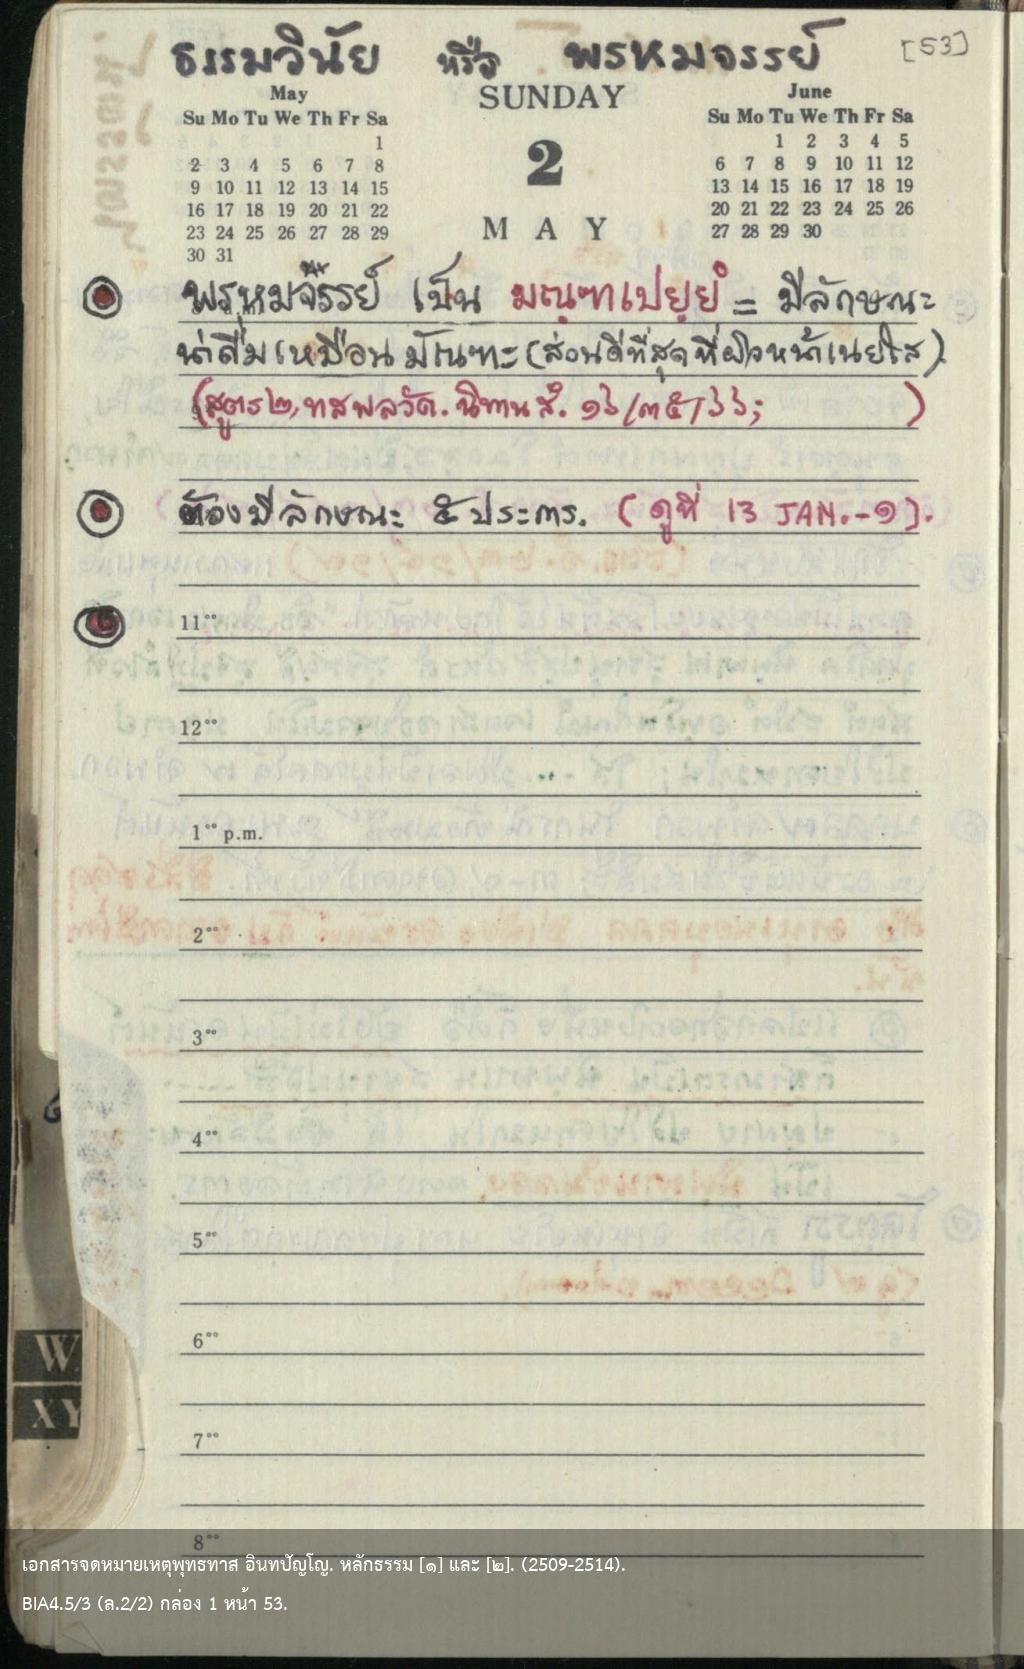 ธรรมวินัย หรือ พรหมจรรย์ [53]
May
Su Mo Tu We Th Fr Sa
1
2 3 4 5 6 7 8
9 10 11 12 13 14 15
16 17 18 19 20 21 22
23 24 25 26 27 28 29
30 31
SUNDAY
2
MAY
June
Su Mo Tu We Th Fr Sa
1 2 3 4 5
6 7 8 9 10 11 12
13 14 15 16 17 18 19
20 21 22 23 24 25 26
27 28 29 30
พรหมจรรย์ เป็น มณฺฑเปยฺยํ = มีลักษณะ
น่าดื่มเหมือนมัณฑะ (ส่วนดีที่สุดที่ผิวหน้าเนยใส)
(สูตร ๒, ทสพลวัค. นิทาน สํ. ๑๖/๓๕/๖๖; )
ต้องมีลักษณะ ๕ ประการ. (ดูที่ 13 JAN.-๑).
11°°
12°°
1°° p.m.
2°°
3°°
4°°
5°°
6°°
7°°
8°°
W
XY
เอกสารจดหมายเหตุพุทธทาส อินทปัญโญ. หลักธรรม [๑] และ [๒]. (2509-2514).
BIA4.5/3 (ล.2/2) กล่อง 1 หน้า 53.